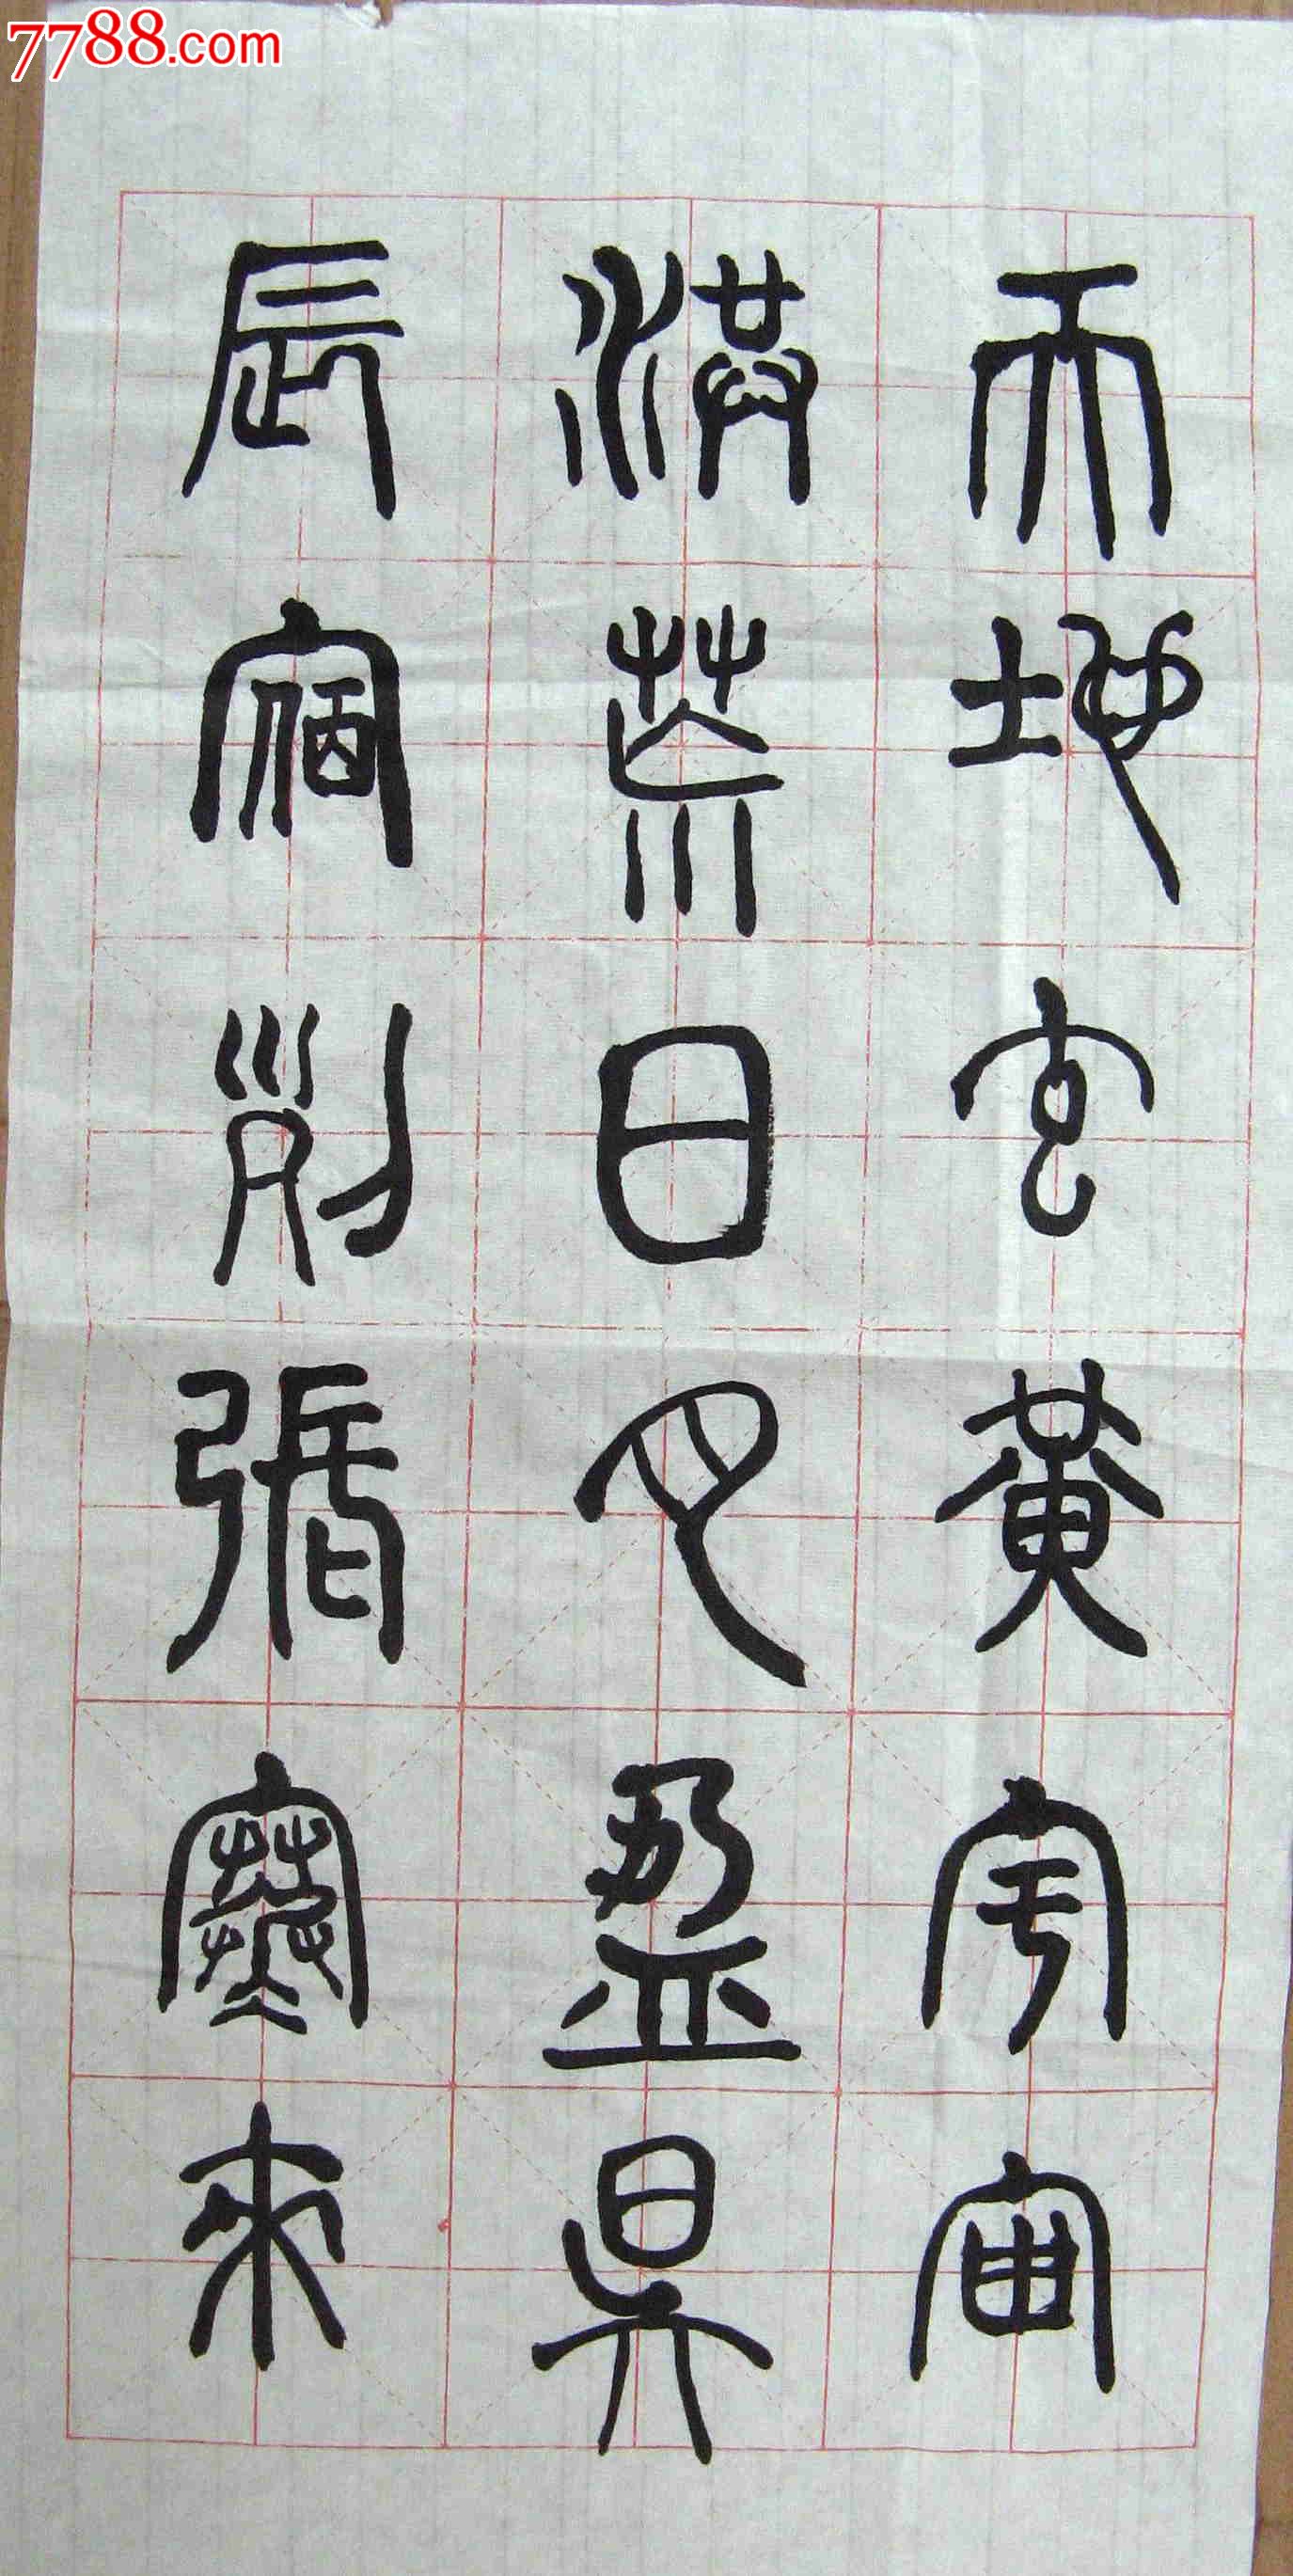 7788.com
天地玄黃宇宙
洪荒日月盈昃
辰宿列張寒來